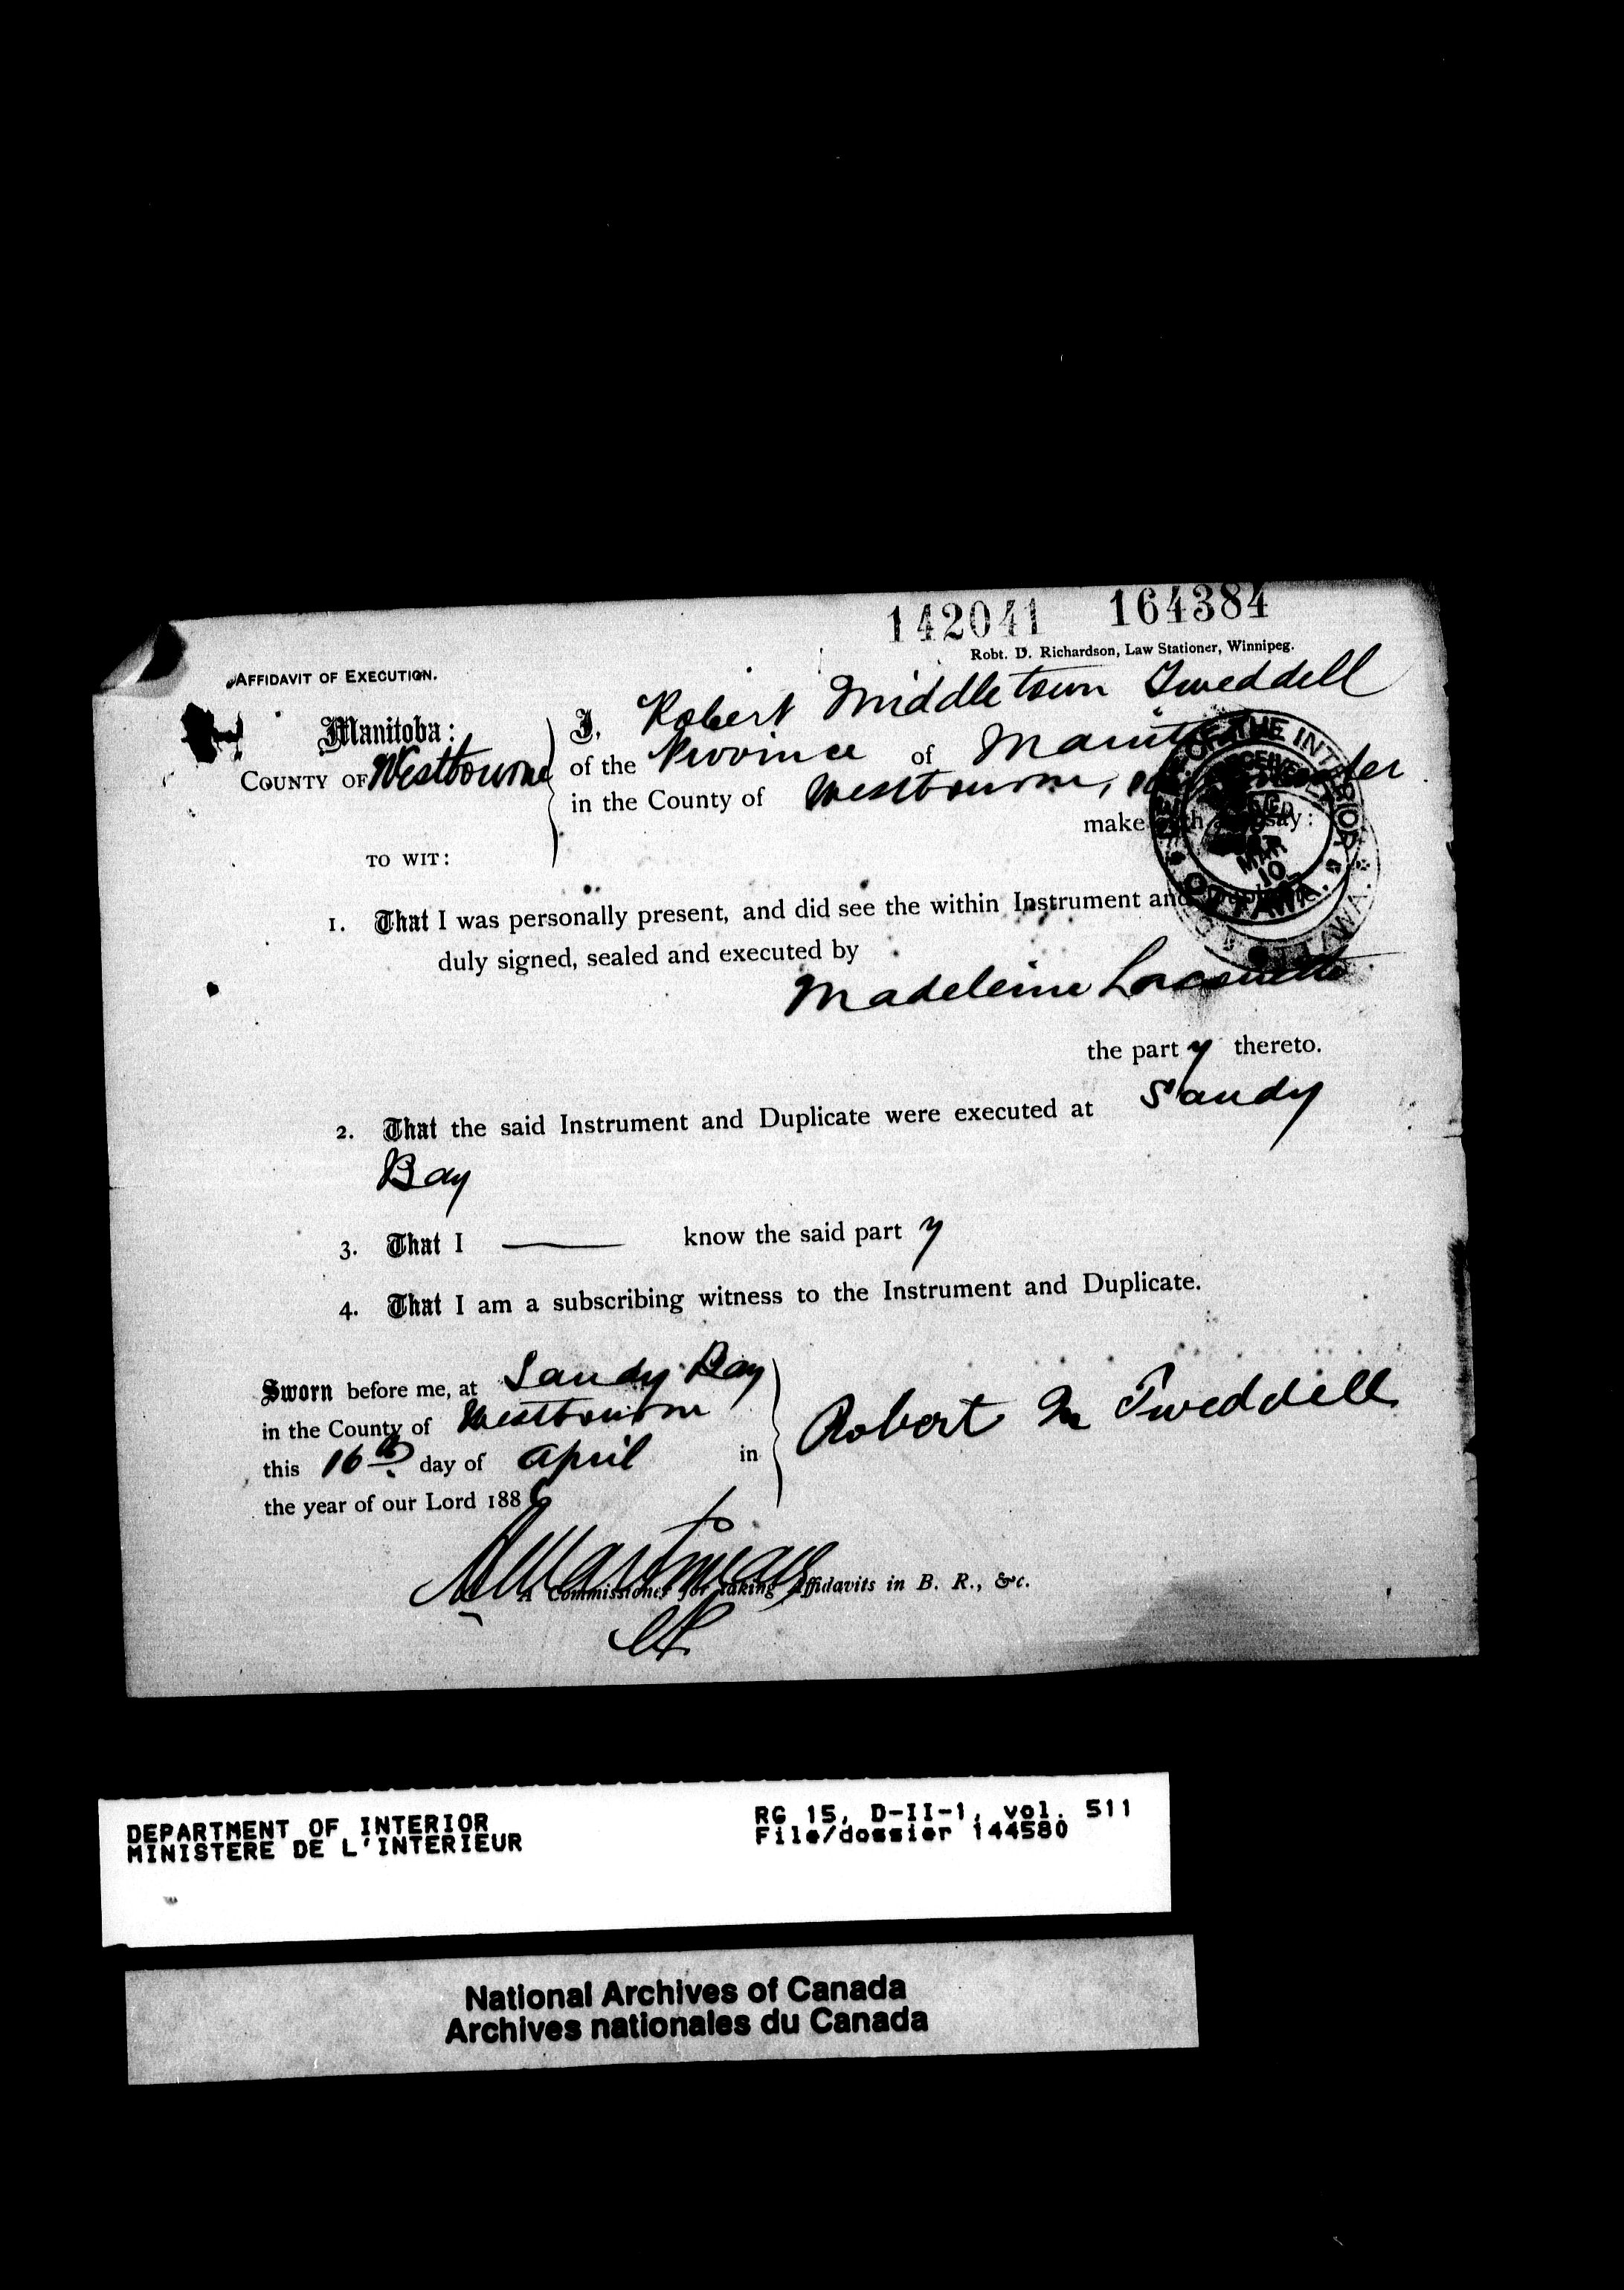 142041 164384
Robt. D. Richardson, Law Stationer, Winnipeg.
AFFIDAVIT OF EXECUTION.
Manitoba:
COUNTY OF Westbourne
TO WIT:
I, Robert Middletown Tweddell
of the Province of Manitoba
in the County of Westbourne,
make oath and say:
OF THE INTERIOR
MAR
10
OTTAWA.
1. That I was personally present, and did see the within Instrument and Duplicate
duly signed, sealed and executed by
Madeleine
the part y thereto.
2. That the said Instrument and Duplicate were executed at Sandy
Bay
3. That I —— know the said part y
4. That I am a subscribing witness to the Instrument and Duplicate.
Sworn before me, at Sandy Bay
in the County of Westbourne
this 16th day of April in
the year of our Lord 1886
Robert M Tweddell
A Commissioner for taking Affidavits in B. R., &c.
DEPARTMENT OF INTERIOR
MINISTERE DE L'INTERIEUR
RG 15, D-II-1, vol. 511
File/dossier 144580
National Archives of Canada
Archives nationales du Canada